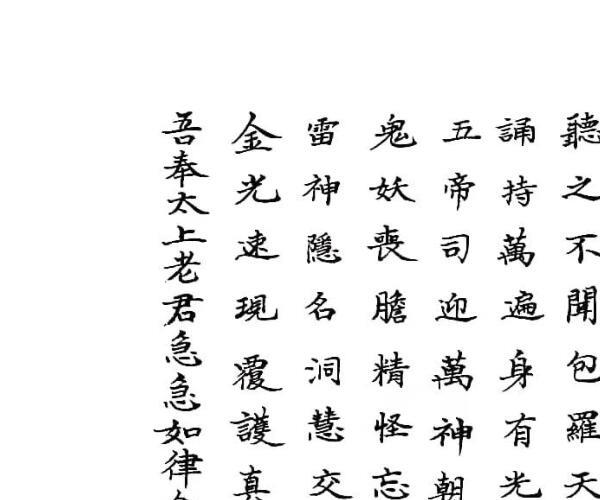 聽之不聞包羅天
誦持萬遍身有光
五帝司迎萬神朝
鬼妖喪膽精怪忘
雷神隱名洞慧交
金光速現覆護真
吾奉太上老君急急如律